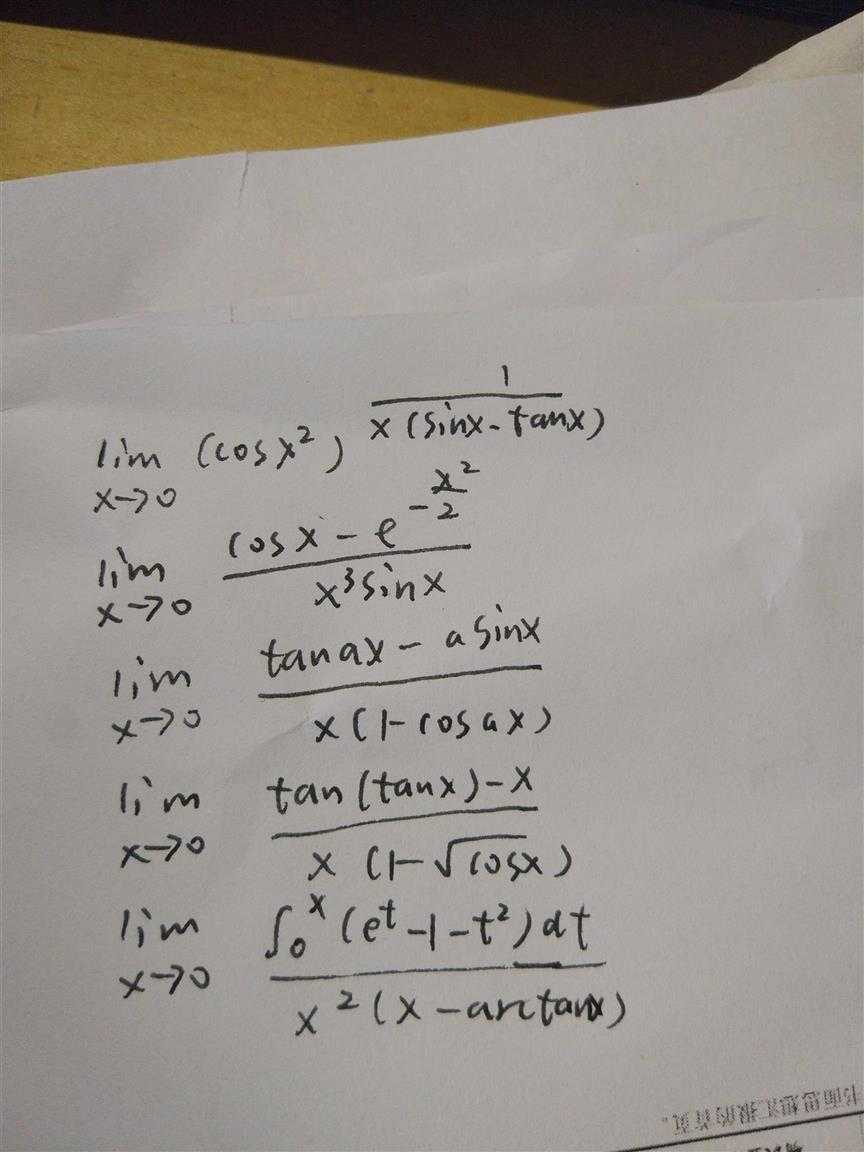 lim_{x→0} (cosx²)^{1/(x(sinx-tanx))}
lim_{x→0} (cosx - e^{-x²/2})/(x³sinx)
lim_{x→0} (tanax - asinx)/(x(1-cosax))
lim_{x→0} (tan(tanx)-x)/(x(1-√cosx))
lim_{x→0} (∫₀ˣ(eᵗ-1-t²)dt)/(x²(x-arctanx))